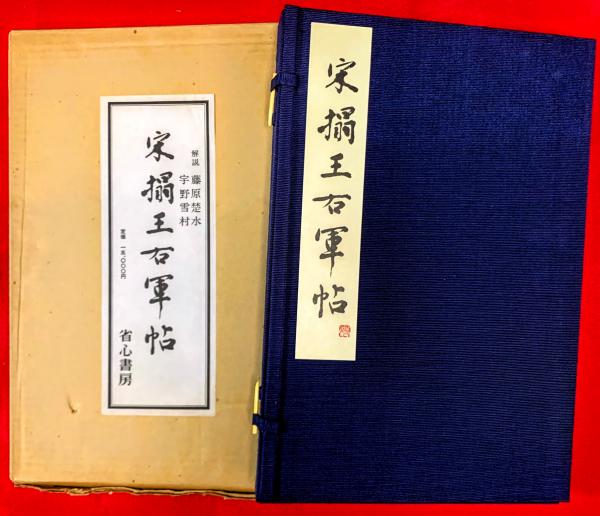 解説 藤原楚水
宇野雪村
宋搨王右軍帖
定価 一五、〇〇〇円
省心書房
宋搨王右軍帖